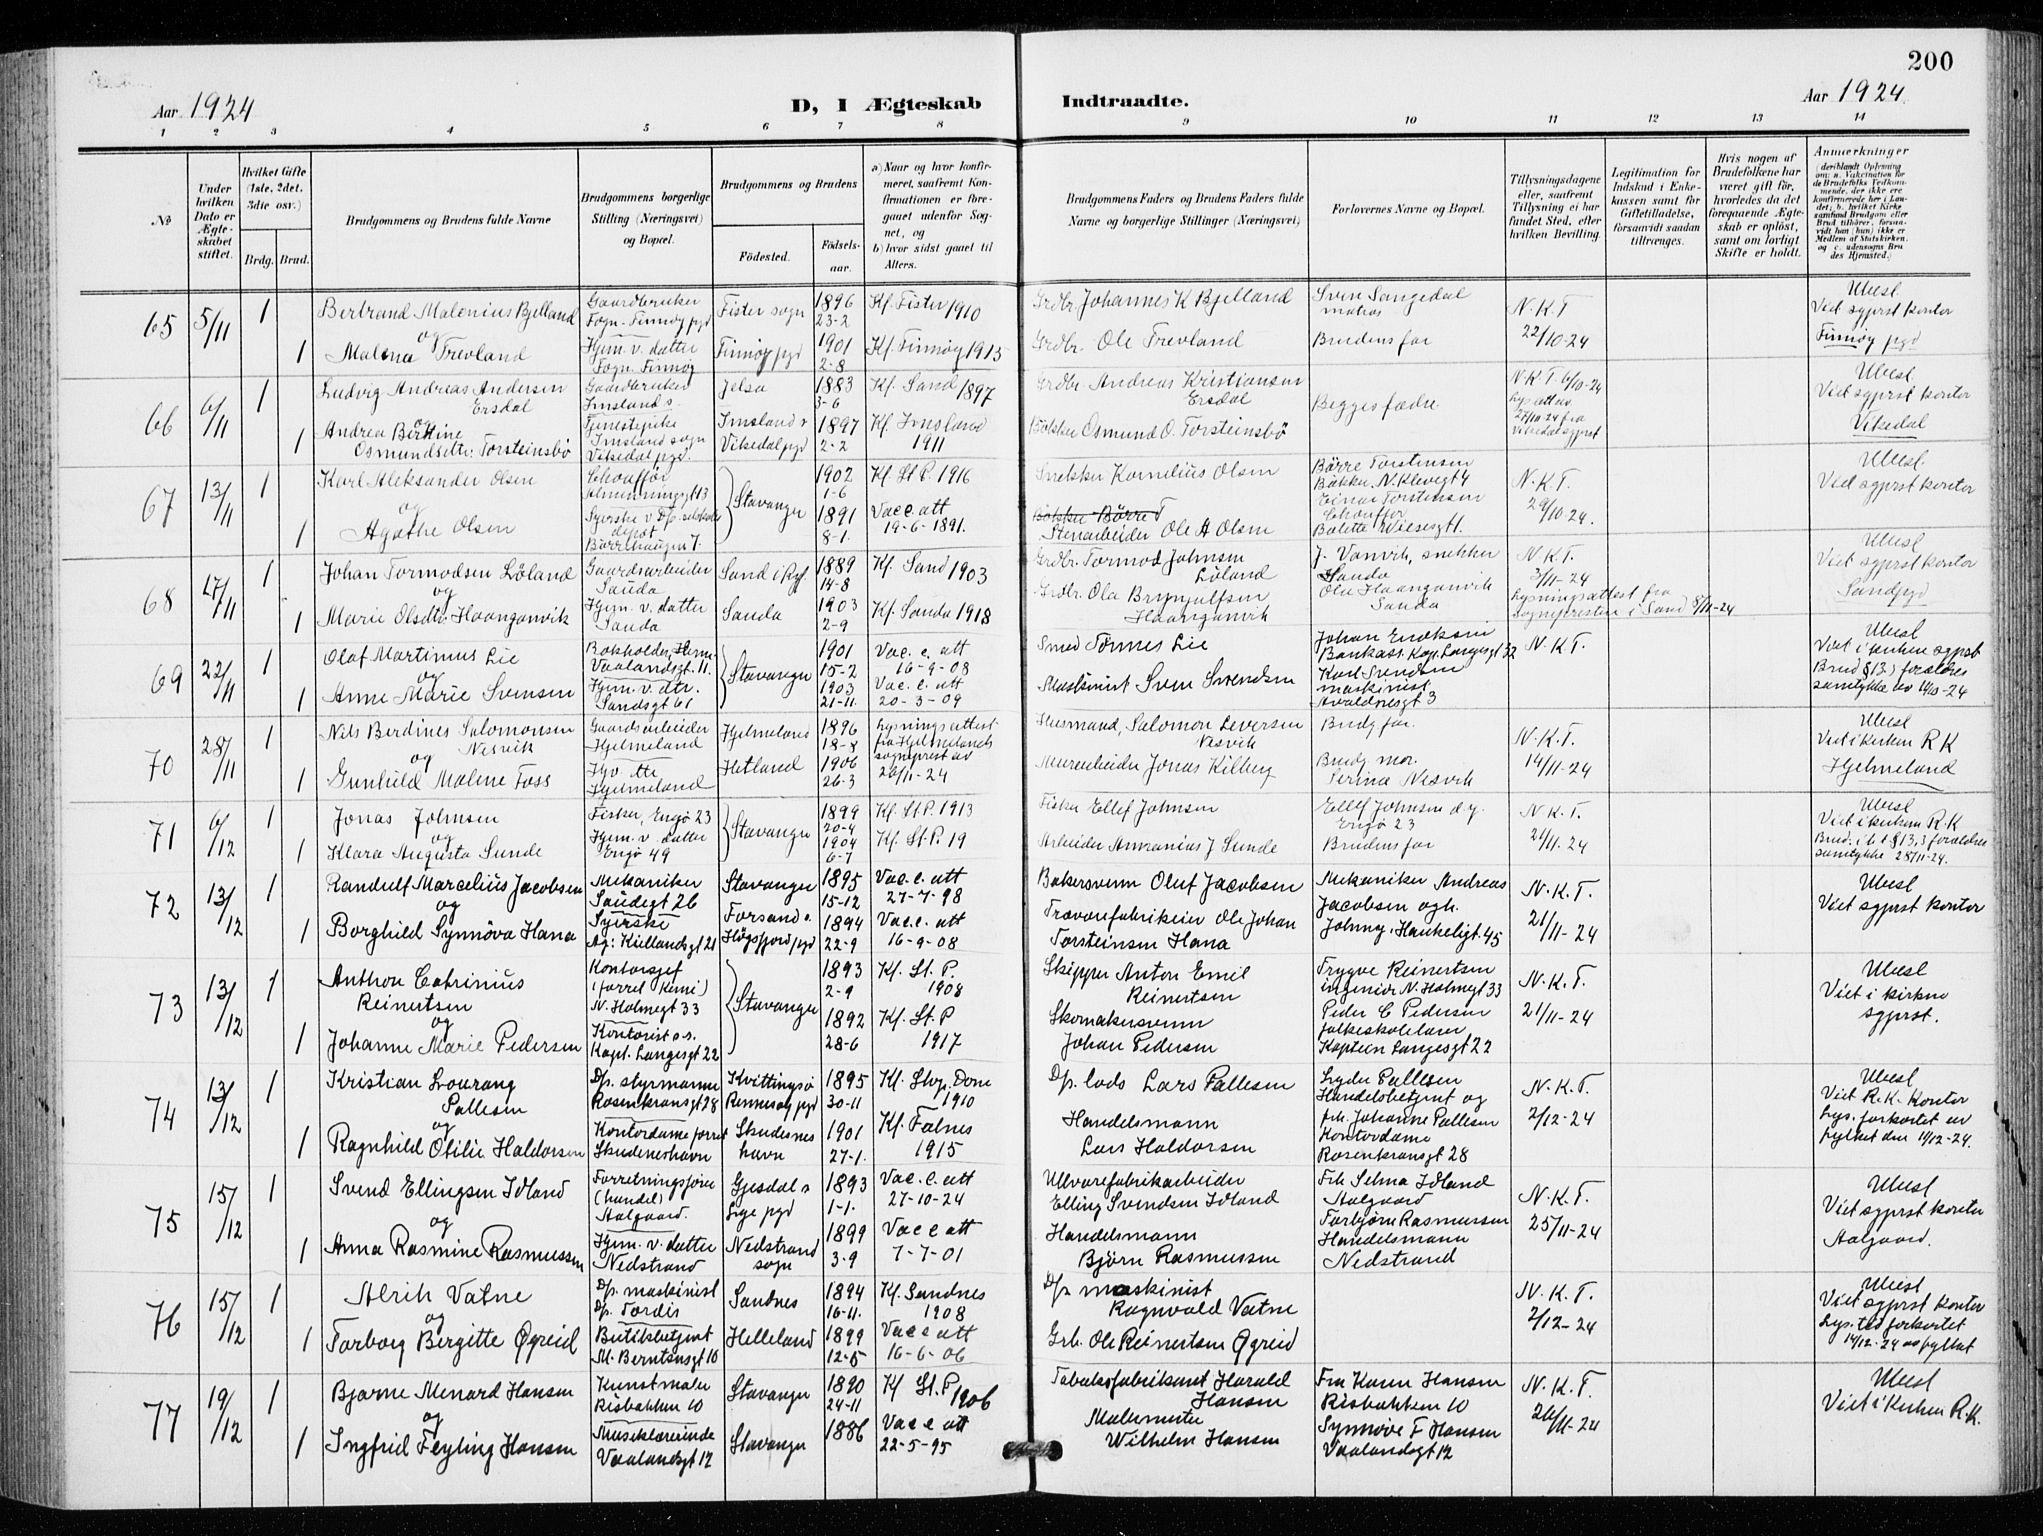 200
Aar 1924
D, I Ægteskab Indtraadte.
Aar 1924.
1 2 3 4 5 6 7 8 9 10 11 12 13 14
№
Under hvilken Dato er Ægteskabet stiftet.
Hvilket Gifte (1ste, 2det, 3die osv.)
Brdg. Brud.
Brudgommens og Brudens fulde Navne
Brudgommens borgerlige Stilling (Næringsvei) og Bopæl.
Brudgommens og Brudens
Födested.
Födselsaar.
a) Naar og hvor konfirmeret, saafremt Konfirmationen er foregaaet udenfor Sognet, og
b) hvor sidst gaaet til Alters.
Brudgommens Faders og Brudens Faders fulde Navne og borgerlige Stillinger (Næringsvei)
Forlovernes Navne og Bopæl.
Tillysningsdagene eller, saafremt Tillysning ei har fundet Sted, efter hvilken Bevilling.
Legitimation for Indskud i Enkekassen samt för Giftetilladelse, forsaavidt saadan tiltrænges.
Hvis nogen af Brudefolkene har været gift för, hvorledes da det foregaaende Ægteskab er oplöst, samt om lovligt Skifte er holdt.
Anmærkninger
(deriblandt Oplysning om: a. Vaccination for de Brudefolks Vedkommende, der ikke ere konfirmerede her i Landet; b. hvilket Kirkesamfund Brudgom eller Brud tilhörer, forsaavidt han (hun) ikke er Medlem af Statskirken, og c. udensogns Brudes Hjemsted.)
65 5/11 1 Bertrand Malenius Bjelland Gaardbruker Fogn. Finnöy pgd Fister sogn 1896 23-2 Kf. Fister 1910 Grdbr. Johannes K Bjelland Sven Sangedal matros N.K.T 22/10-24 Ubesl Viet sgprst kontor Finnöy pgd
og
1 Malena Trevland Hjem. v. datter Fogn. Finnöy Finnöy pgd 1901 2-8 Kf. Finnöy 1915 Grdbr. Ole Trevland Brudens far
66 6/11 1 Ludvig Andreas Andersen Ersdal Gaardbruker Imsland s. Jelsa 1883 3-6 Kf. Sand 1897 Grdbr. Andreas Kristiansen Ersdal Begges fædre N.K.T. 6/10-24 27/10-24 fra Vikedal sgprst Ubesl. Viet sgprst kontor Vikedal
og
1 Andrea Bertine Osmundsdtr. Torsteinsbö Tjenestepike Imsland sogn Vikedal pgd. Imsland s Vikedal pgd 1897 2-2 Kf. Imsland 1911 Bökker Osmund O. Torsteinsbö
67 13/11 1 Karl Aleksander Olsen Chaufför Almenningsgt 13 Stavanger 1902 1-6 Kf. St. P. 1916 Snekker Kornelius Olsen Börre Torstensen Bökker, N. Klevegt 4 N.K.T. 29/10-24. Ubesl. Viet sgprst kontor
og
1 Agathe Olsen Syerske 1891 8-1. Vacc. att 19-6-1891. Stenarbeider Ole A Olsen Einar Torstensen Chauffor Balette Wiesesgt 1.
68 27/11 1 Johan Tormodsen Löland Gaardsarbeider Sauda Sand i Ryf. 1889 14-8 Kf. Sand 1903 Grdbr. Tormod Johnsen Löland J. Vanvik, snekker Sauda N.K.T. 3/11-24 Ubesl Viet sgprst kontor Sand pgd
og
1 Marie Olsdtr. Haanganvik Hjem. v. datter Sauda Sauda 1903 2-9 Kf. Sauda 1918 Grdbr. Ola Brynjulfsen Haanganvik Ola Haanganvik Sauda Lysningsattest fra sognepresten i Sand 8/11-24
69 22/11 1 Olaf Martinus Lie Bokholder, Vaalandsgt. 11. Stavanger 1901 15-2 Vac. c. att 16-9-08 Smed Tönnes Lie Johan Eriksen Bankass. Kap. Langesgt 32 N.K.T. Ubesl Viet i kirken sgprst Brud §13,3 forældres samtykke av 14/10-24
og
1 Anne Marie Svensen Hjem. v. dtr. Sandsgt 61 1903 21-11. Vac. c. att 20-3-09 Maskinist Sven Svendsen Karl Svendsen maskinist Avaldnesgt 3
70 28/11 1 Nils Berdines Salomonsen Nesvik Gaardsarbeider Hjelmeland Hjelmeland 1896 18-8 Lysningsattest fra Hjelmelands sogneprest av 26/11-24 Husmand, Salomon Seversen Nesvik Brudg far. N.K.T. 14/11-24 Ubesl Viet i kirken R K Hjelmeland
og
1 Gunhild Malene Foss Hjv dtr Hjelmeland Hetland 1906 26-3 Murarbeider Jonas Kilberg Brudg mor. Serina Nesvik
71 6/12 1 Jonas Johnsen Fisker, Engö 23 Stavanger 1899 20-4 Kf. St. P. 1913 Fisker Ellef Johnsen Ellef Johnsen d.y. Engö 23 N.K.T. 21/11-24 Ubesl Viet i kirken R.K Brud: §13,3 forældres samtykke 28/11-24.
og
1 Klara Augusta Sunde Hjem. v. datter Engö 49 1904 6-7 Kf. St. P. 19 Arbeider Ananias J Sunde Brudens far
72 13/12 1 Randulf Marcelius Jacobsen Mekaniker Saudegt 26 Stavanger 1895 15-12 Vac. c. att 27-7-98 Bakersvenn Oluf Jacobsen Mekaniker Andreas Jacobsen ogh. Johny, Haukeligt 45 N.K.T. 21/11-24 Ubesl Viet sgprst kontor
og
1 Borghild Synnöva Hana Syerske Ag. Kiellandsgt 21 Forsand s. Högsfjord pgd 1894 22-9 Vac. c. att 16-9-08 Trævarefabrikeier Ole Johan Torsteinsen Hana
73 13/12 1 Anthon Catrinius Reinertsen Kontorsjef N. Holmegt 33 Stavanger 1893 2-9 Kf. St. P. 1908 Skipper Anton Emil Reinertsen Trygve Reinertsen ingeniör N. Holmegt 33 N.K.T. 21/11-24 Ubesl Viet i kirken sgprst.
og
1 Johanne Marie Pedersen Kontorist o.s. Kapt. Langesgt 22 1892 28-6 Kf. St. P 1917 Skomakersvenn Johan Pedersen Peder C Pedersen folkeskolelærer Kaptein Langesgt 22
74 13/12 1 Kristian Lourang Pallesen Dp. styrmann Rosenkransgt 28 Kvittingsö Rennesöy pgd 1895 30-11 Kf. Stvg. Dom 1910 Dp. lods Lars Pallesen Lyder Pallesen Handelsbetjent og frk. Johanne Pallesen Kontordame Rosenkransgt 28 N.K.T. 2/12-24 Ubesl Viet R.K. Kontor Lys. forkortet av Fylket den 11/12-24.
og
1 Ragnhild Otilie Haldorsen Kontordame forret Skudeneshavn Skudeneshavn 1901 27-1. Kf. Falnes 1915 Handelsmann Lars Haldorsen
75 15/12 1 Svend Ellingsen Idland Forretningsförer (handel) Aalgaard. Gjesdal s Lye pgd 1893 1-1. Vac. c. att 27-10-24 Ullvarefabrikarbeider Elling Svendsen Idland Frk Selma Idland Aalgaard N.K.T. 25/11-24 Ubesl Viet sgprst kontor Aalgaard.
og
1 Anna Rasmine Rasmussen Hjem. v. datter Nedstrand Nedstrand sogn 1899 3-9 Vac c att 7-7-01 Handelsmann Björn Rasmussen Torbjörn Rasmussen Handelsmann Nedstrand
76 15/12 1 Alrik Vatne Dp. maskinist Dp. Tordis Sandnes 1894 16-11. Kf. Sandnes 1908 Dp maskinist Ragnvald Vatne N.K.T. 2/12-24 Ubesl Viet sgprst kontor Lys. tid forkortet 14/12-24 av fylket
og
1 Torborg Bergitte Øgreid Butikbetjent M. Berntsensgt 10 Helleland 1899 12-5 Vac c att 16-6-06 Grb. Ole Reinertsen Øgreid
77 19/12 1 Bjarne Menard Hansen Kunstmaler Risbakken 10 Stavanger 1890 24-11 Kf St. P 1906 Tobaksfabrikant Harald Hansen Fru Karen Hansen Risbakken 10 N.K.T. 26/11-24 Ubesl Viet i kirken R.K.
og
1 Ingfrid Feyling Hansen Musiklærerinde Vaalandsgt 12 Stavanger 1886 Vac c att 22-5-95 Malermester Wilhelm Hansen Synnöve F Hansen Vaalandsgt 12